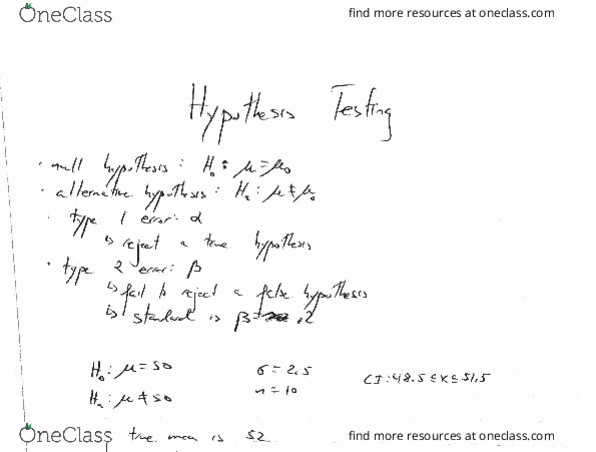 OneClass find more resources at oneclass.com
Hypothesis Testing
· null hypothesis: H₀: μ=μ₀
· alternative hypothesis: Hₐ: μ≠μ₀
· type 1 error: α
↳ reject a true hypothesis
· type 2 error: β
↳ fail to reject a false hypothesis
↳ standard is β= .2
H₀: μ=50 σ=2.5
n=10
CI: 48.5 ≤ x ≤ 51.5
Hₐ: μ≠50
OneClass true mean is 52 find more resources at oneclass.com